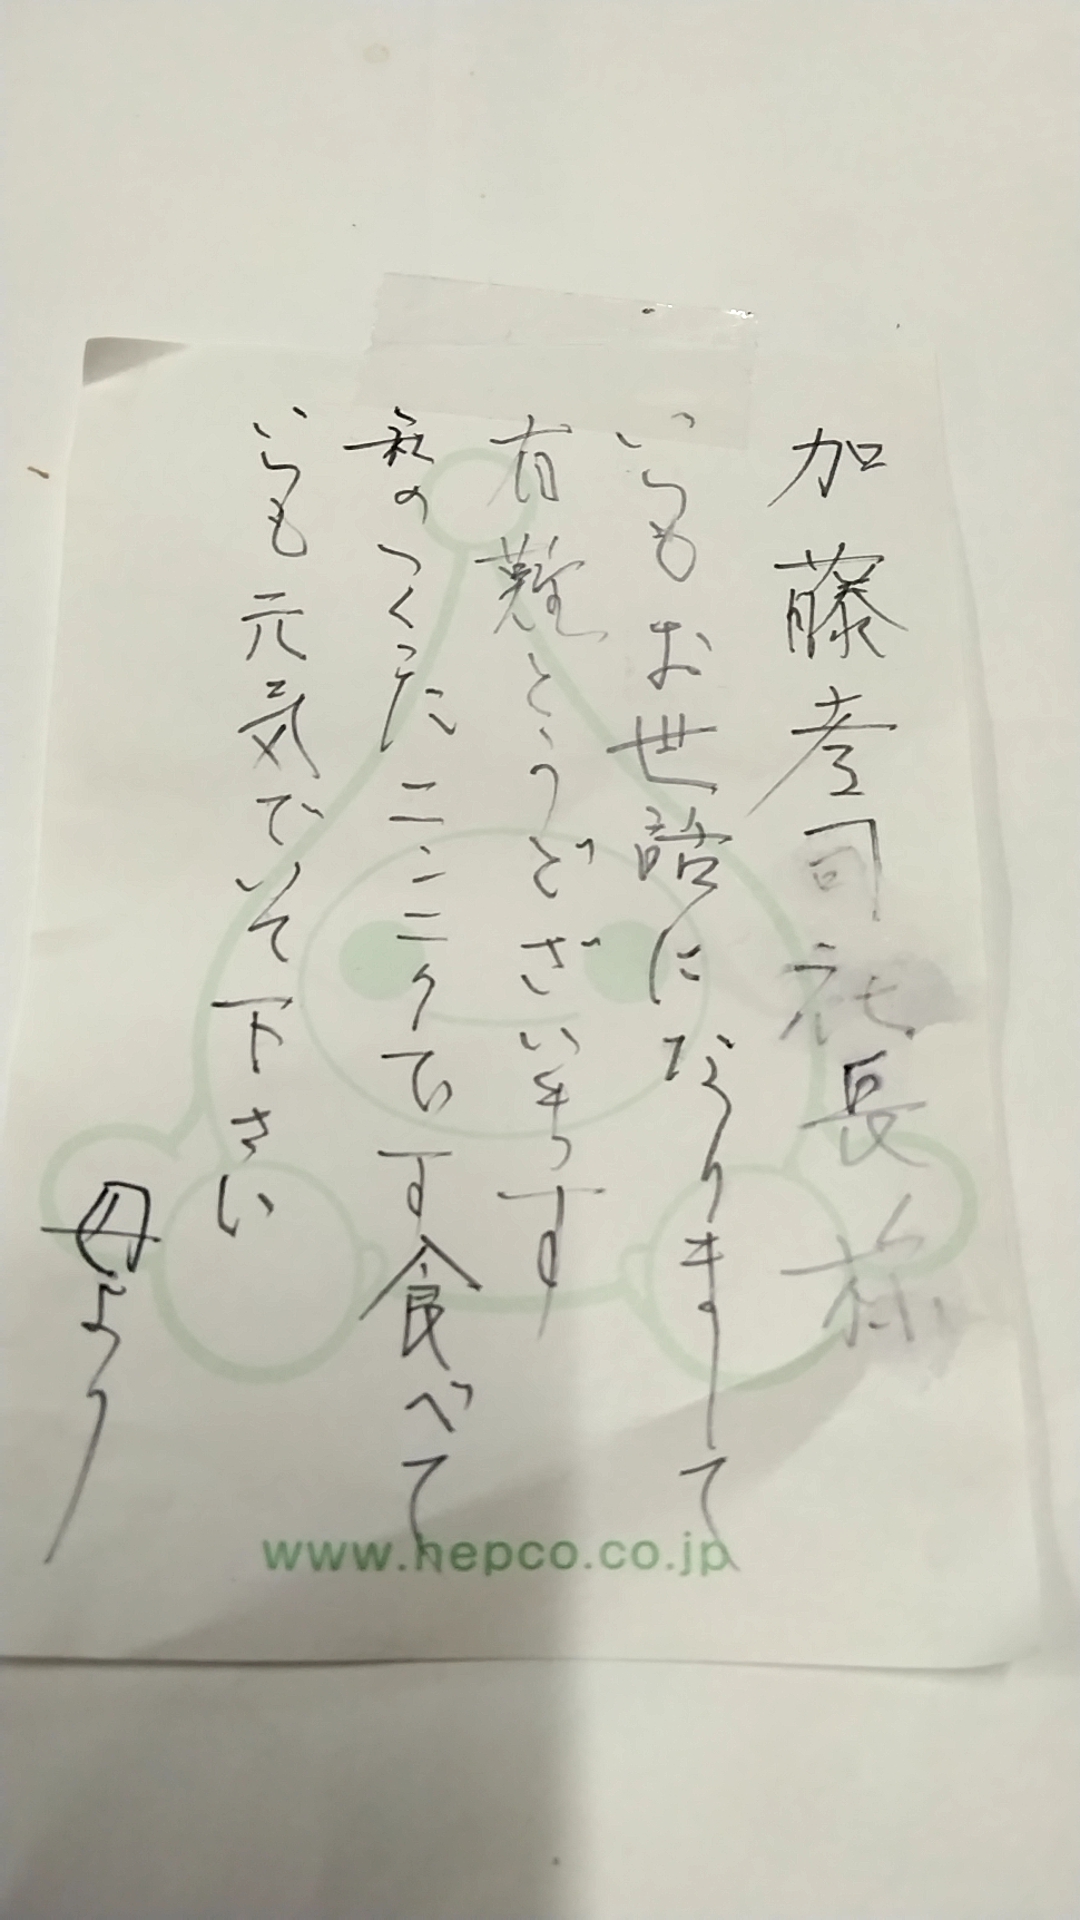 加藤孝司社長様
いつもお世話になりまして
有難とうどざいます
私のつくったニンニクです食べて
いつも元気でいて下さい
母より
www.hepco.co.jp